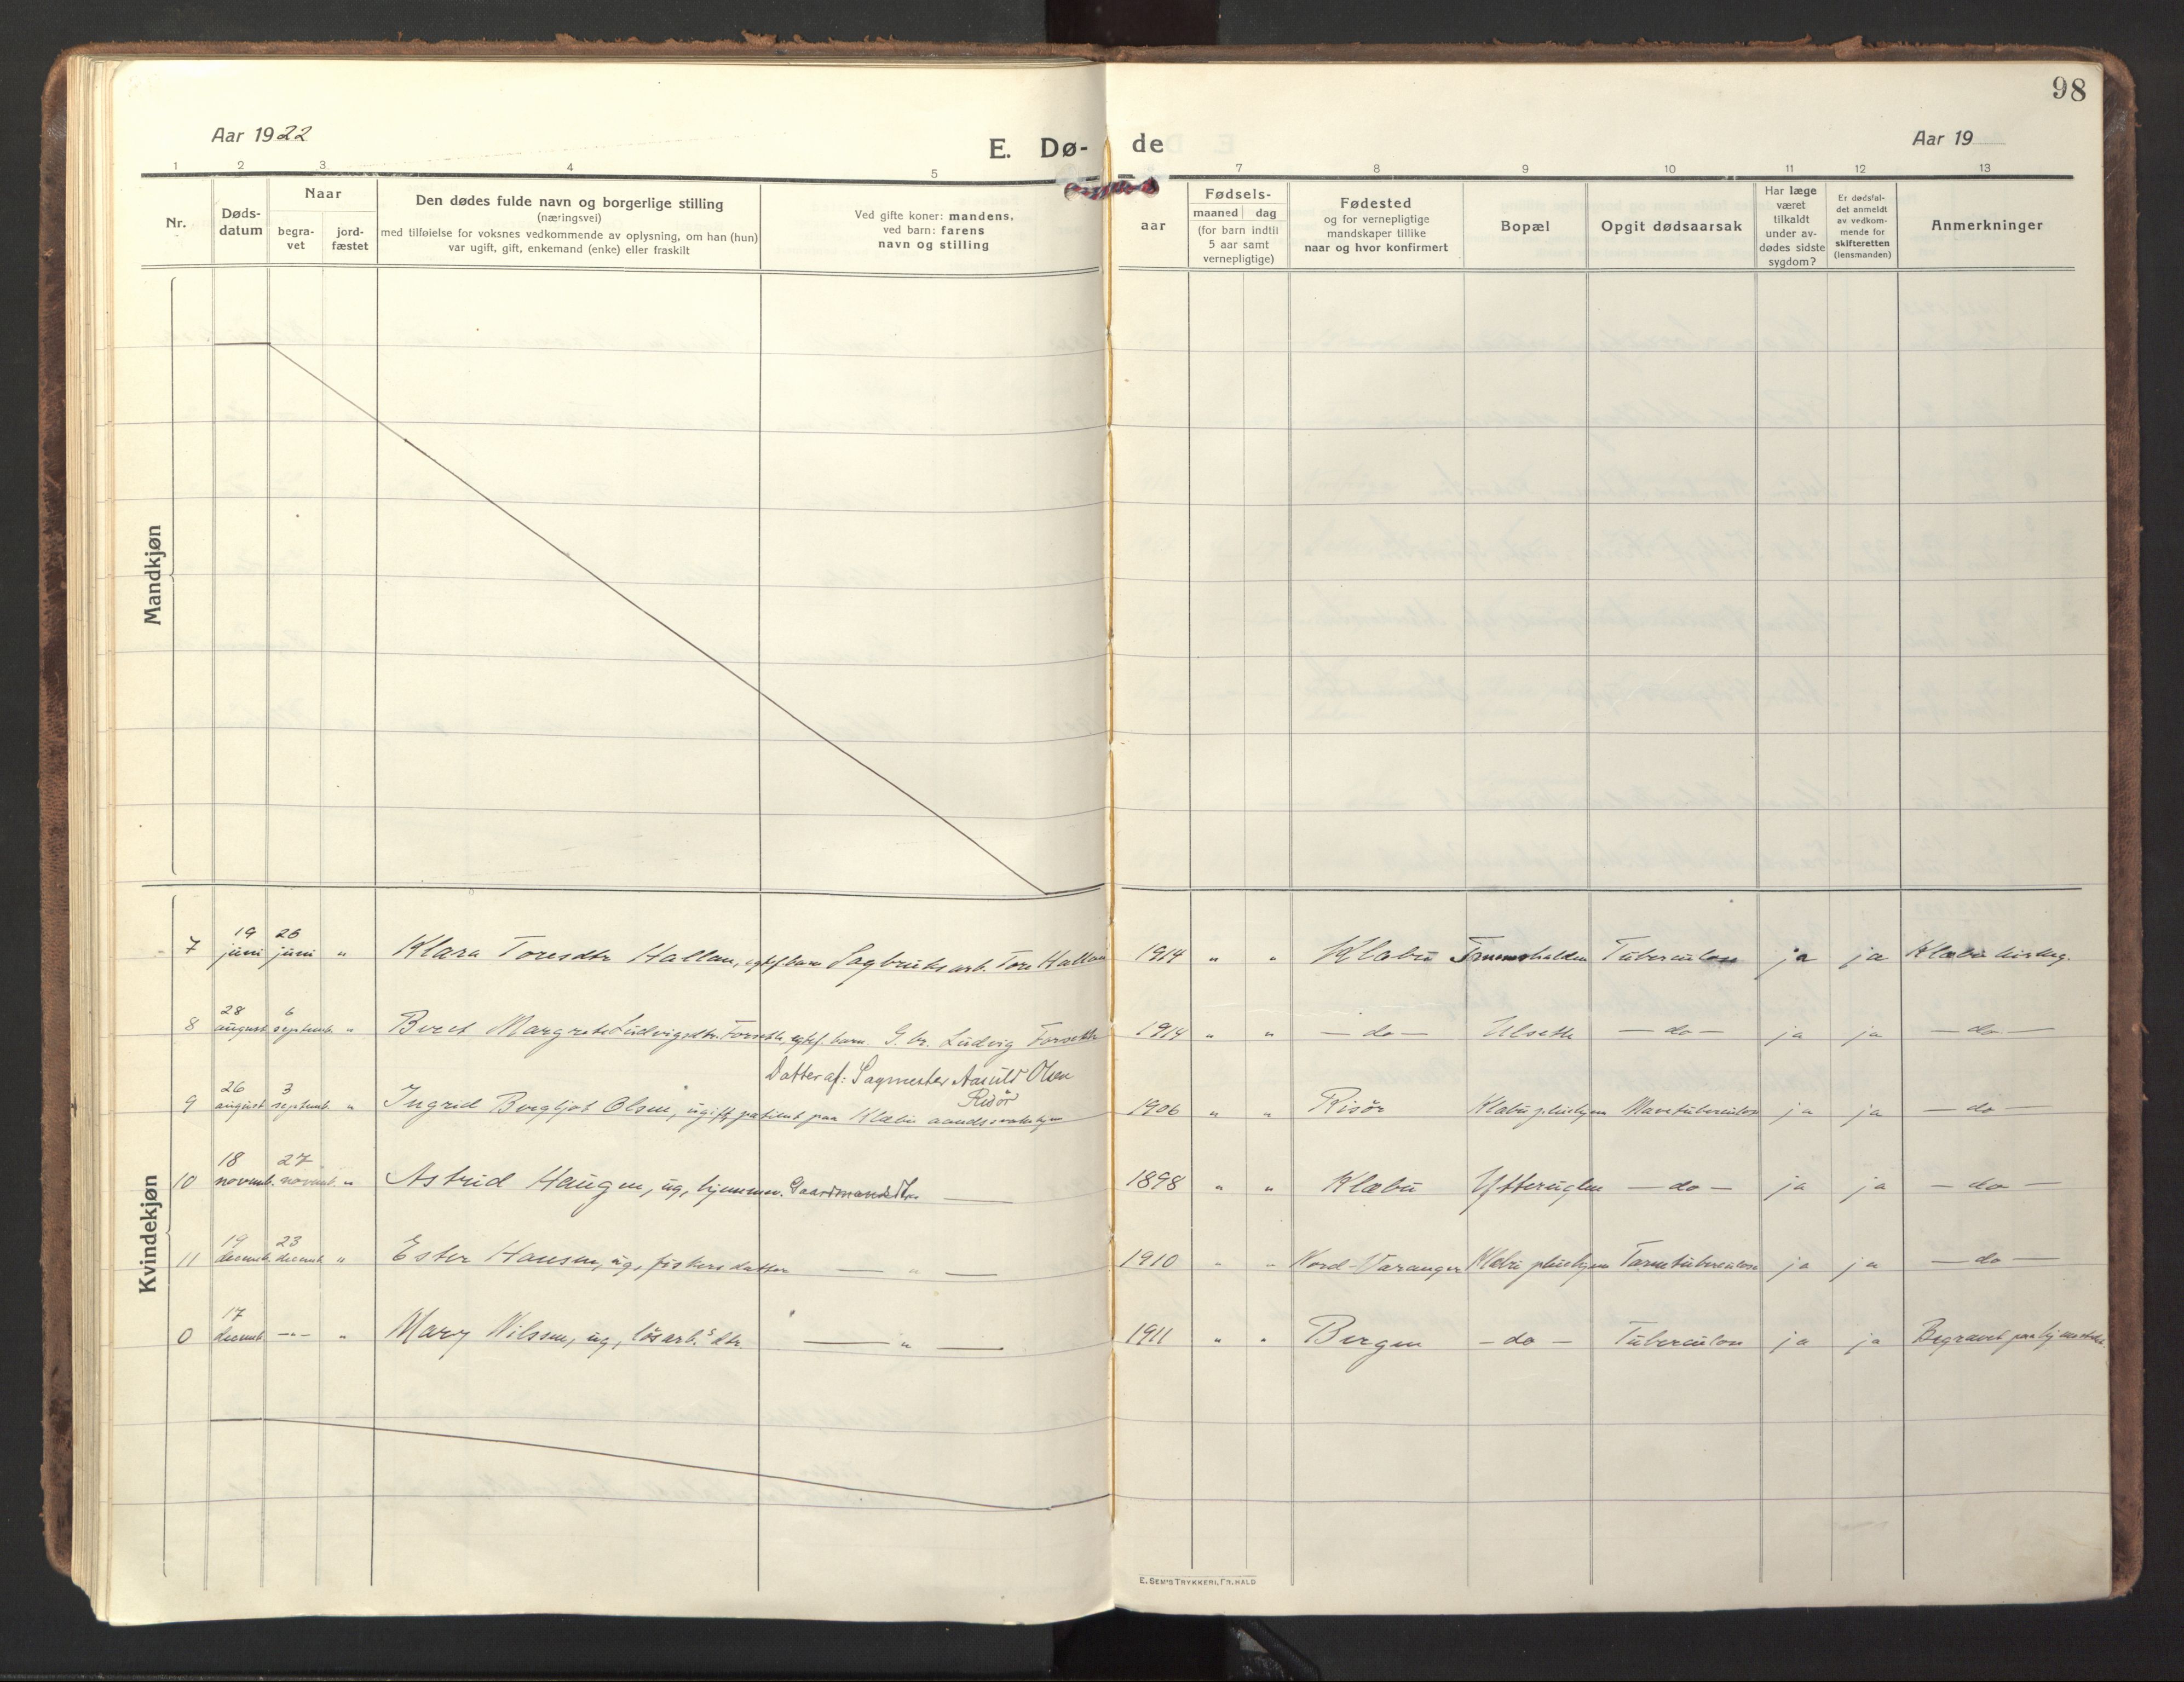 98
Aar 1922
E. Dø-
de
Aar 19
1 2 3 4 5 7 8 9 10 11 12 13
Nr.
Døds-
datum
Naar
begra-
vet
jord-
fæstet
Den dødes fulde navn og borgerlige stilling
(næringsvei)
med tilføielse for voksnes vedkommende av oplysning, om han (hun)
var ugift, gift, enkemand (enke) eller fraskilt
Ved gifte koner: mandens,
ved barn: farens
navn og stilling
aar
Fødsels-
maaned dag
(for barn indtil
5 aar samt
vernepligtige)
Fødested
og for vernepligtige
mandskaper tillike
naar og hvor konfirmert
Bopæl
Opgit dødsaarsak
Har læge
været
tilkaldt
under av-
dødes sidste
sygdom?
Er dødsfal-
det anmeldt
av vedkom-
mende for
skifteretten
(lensmanden)
Anmerkninger
Mandkjøn
Kvindekjøn
19 26
7 juni juni " Klara Toresdtr Hallan, egtef. barn Sagbruksarb. Tore Hallan 1914 " " Klæbu Tuberculose ja ja Klæbu kirkeg.
28 6
8 august septemb. " Beret Margrete Ludvigsdtr. Forseth, egtef. barn. G. br. Ludvig Forseth 1914 " " — do — Ulseth — do — ja ja — do —
Datter af: Sagmester Aanuld Olsen
Risör
26 3
9 august septemb. " Ingrid Bergljot Olsen, ugift, patient paa Klæbu aandssvakehjem 1906 " " Risör Klæbu pleiehjem Mavetuberculose ja ja — do —
18 27
10 novemb. novemb. " Astrid Haugen, ug, hjemmev. Gaardmandsdtr — 1898 " " Klæbu Ytteruglen — do — ja ja — do —
19 23
11 decemb. decemb " Ester Hansen, ug, fiskersdatter — " — 1910 " " Nord-Varanger Klæbu pleiehjem Tarmtuberculose ja ja — do —
17
0 decemb. — " — " Mary Nilssen, ug, lösarb.s dtr — " — 1911 " " Bergen — do — Tuberculose ja ja Begravet paa hjemstedet
E. SEM'S TRYKKERI, FR. HALD